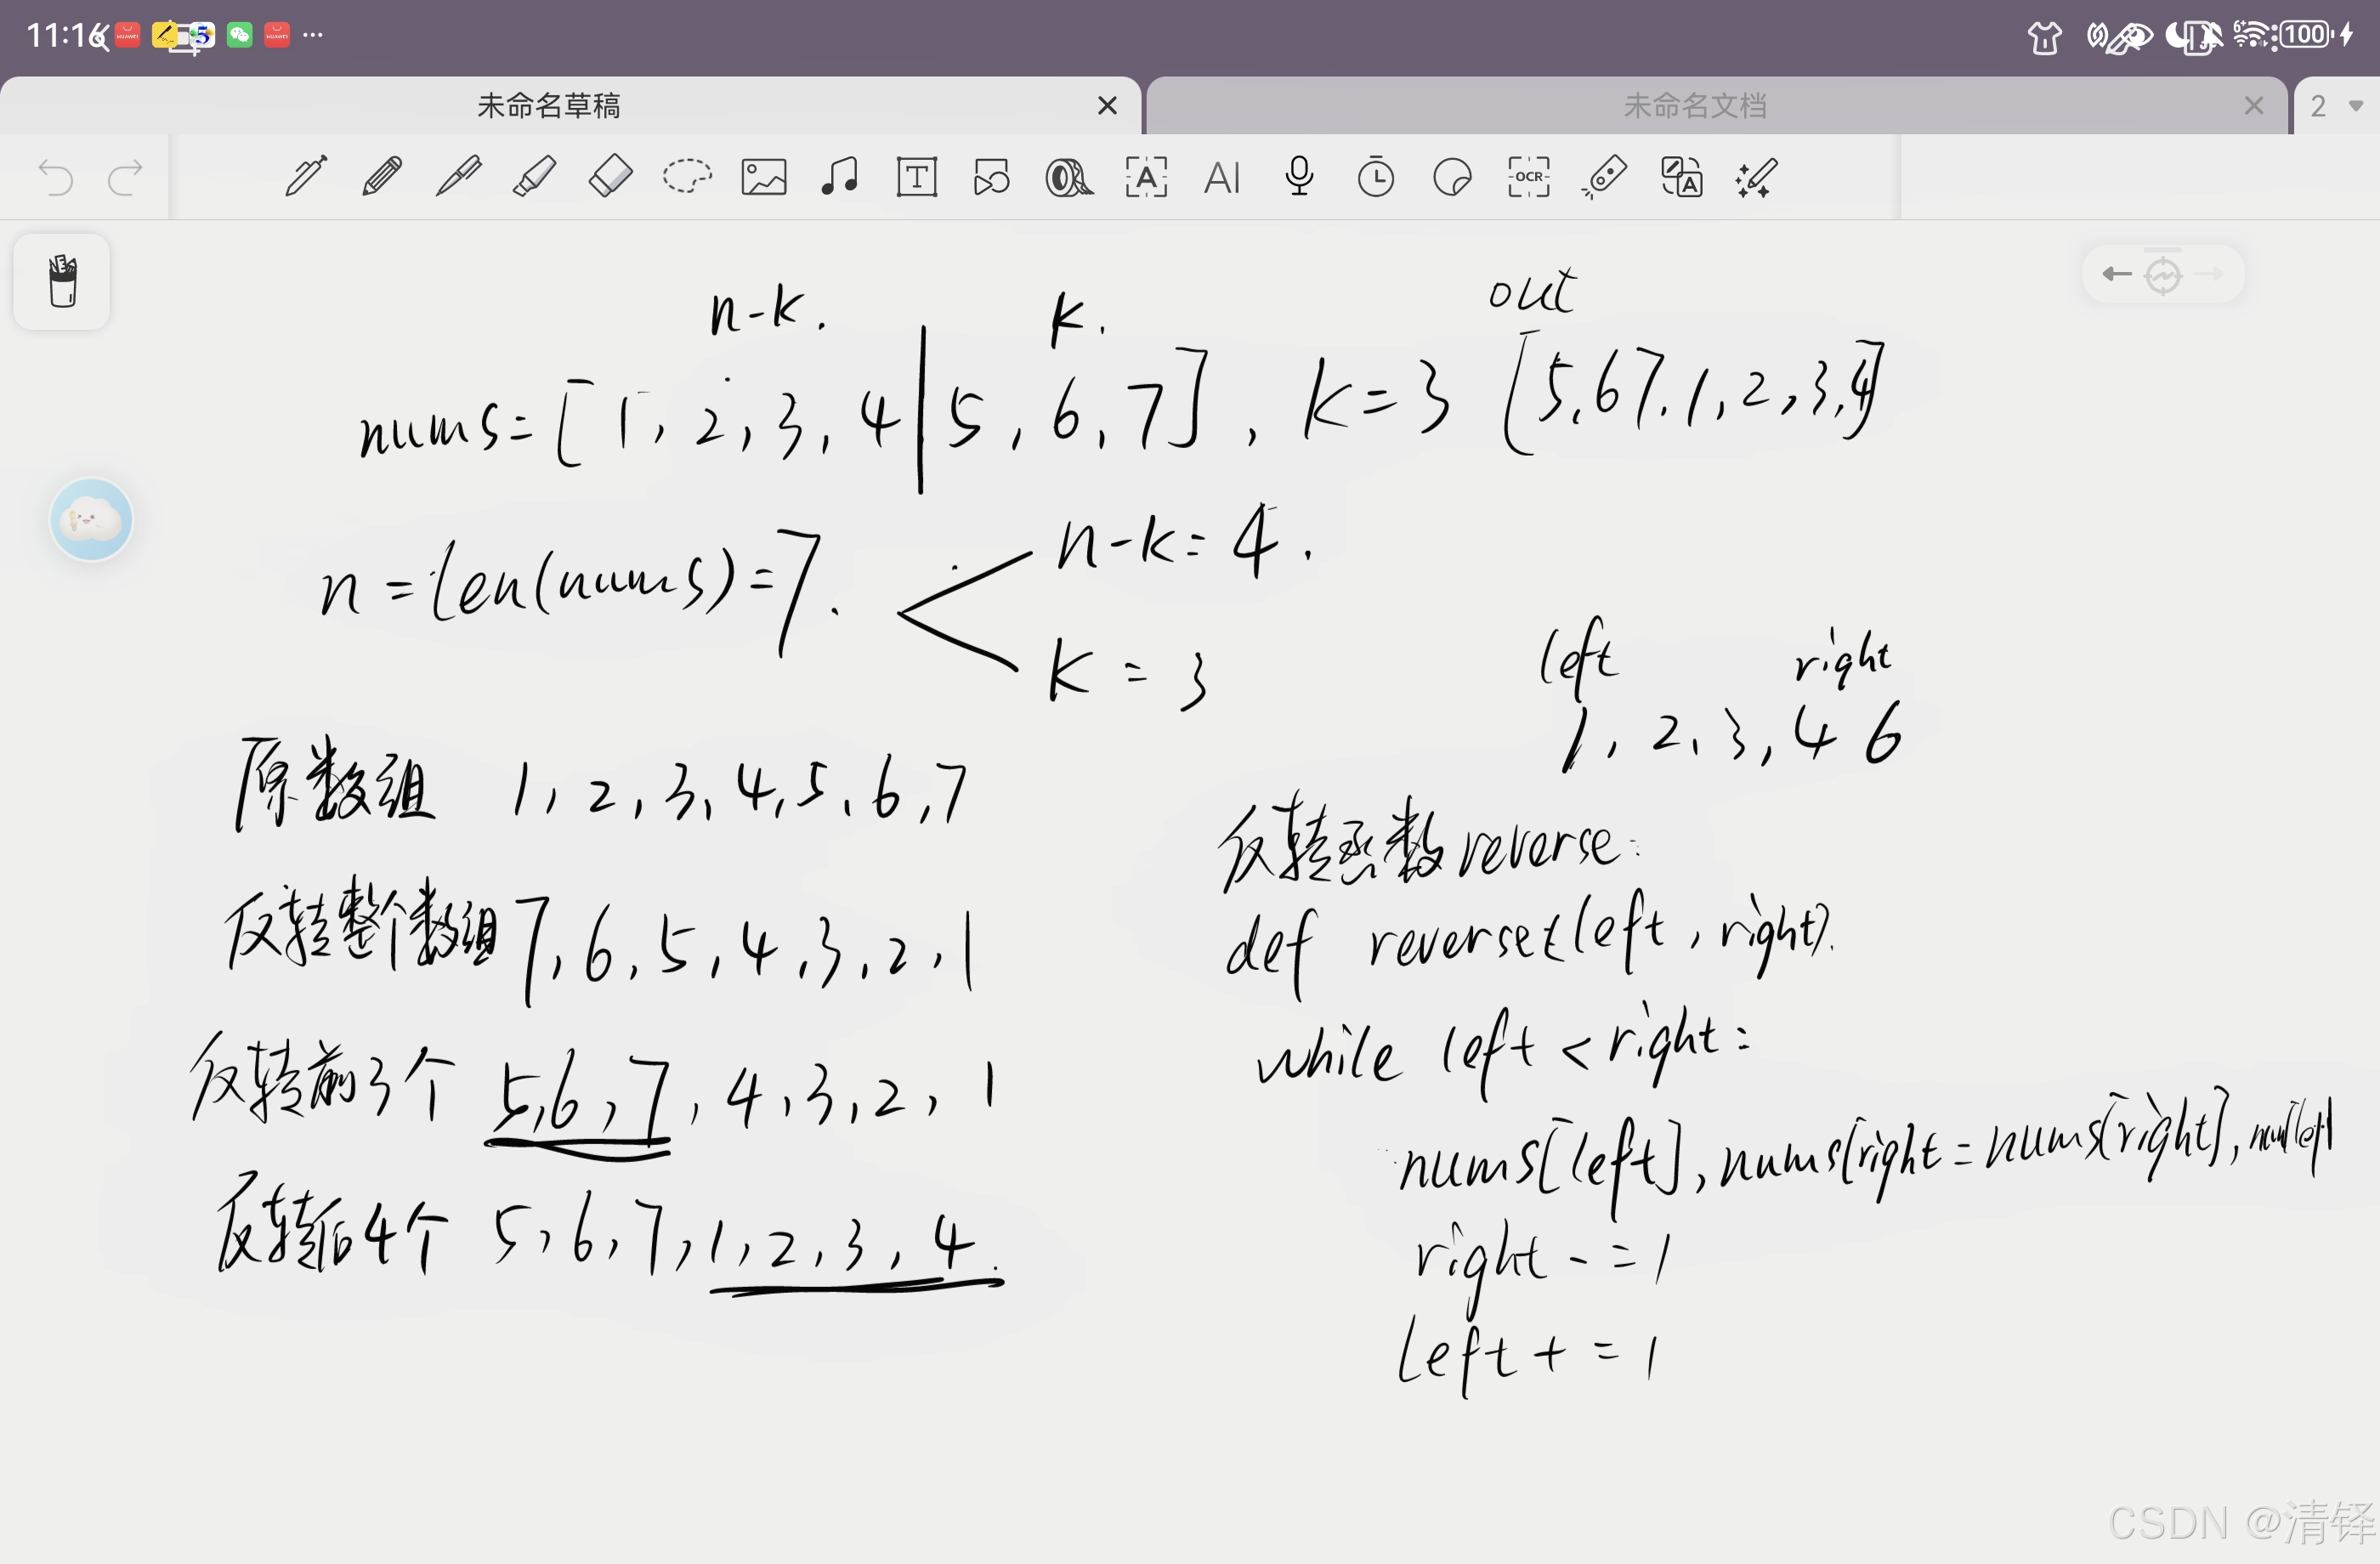 11:16
100
未命名草稿
未命名文档
2
T
A
AI
OCR
A
n-k.
k.
out
nums=[1,2,3,4|5,6,7],k=3
[5,67,1,2,3,4]
n=len(nums)=7.
n-k=4.
k=3
left right
1,2,3,4 6
原数组 1,2,3,4,5,6,7
反转整个数组 7,6,5,4,3,2,1
反转前3个 5,6,7,4,3,2,1
反转后4个 5,6,7,1,2,3,4.
反转函数reverse:
def reverse(left,right).
while left<right:
nums[left],nums[right=nums[right],num[left
right-=1
left+=1
CSDN @清铎